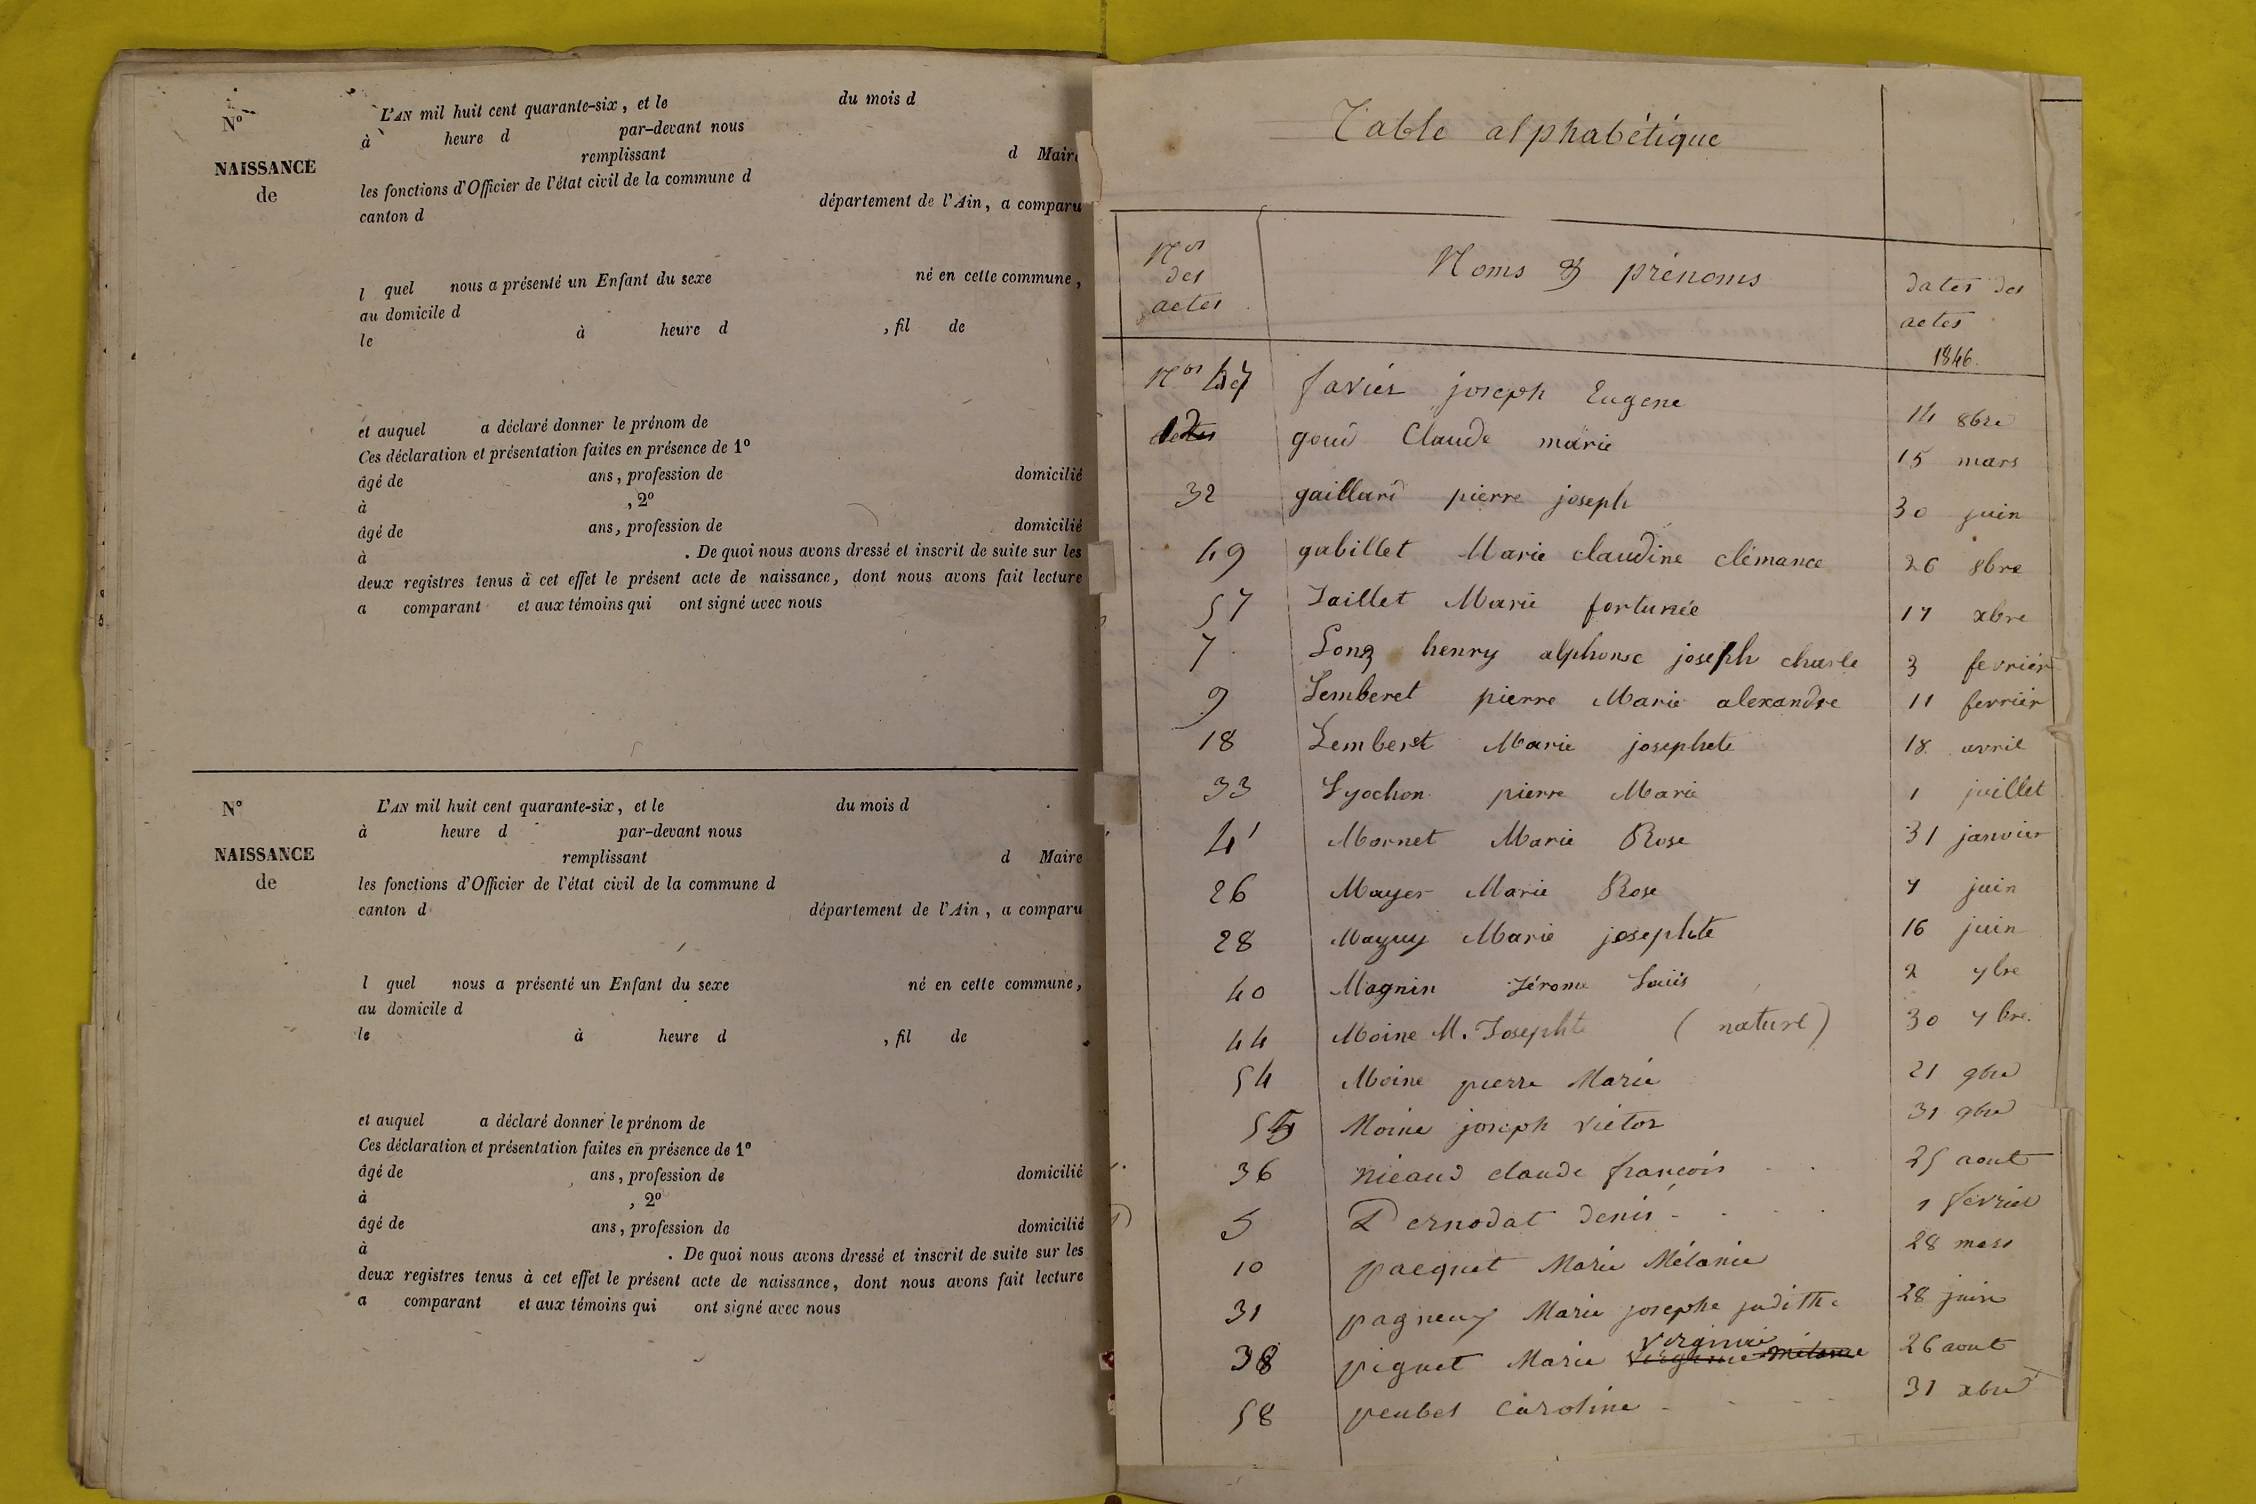 N°
NAISSANCE
de
L'AN mil huit cent quarante-six, et le du mois d
à heure d par-devant nous
remplissant d Maire
les fonctions d'Officier de l'état civil de la commune d
canton d département de l'Ain, a comparu
l quel nous a présenté un Enfant du sexe né en cette commune,
au domicile d
le à heure d , fil de
et auquel a déclaré donner le prénom de
Ces déclaration et présentation faites en présence de 1°
âgé de ans, profession de domicilié
à , 2°
âgé de ans, profession de domicilié
à . De quoi nous avons dressé et inscrit de suite sur les
deux registres tenus à cet effet le présent acte de naissance, dont nous avons fait lecture
a comparant et aux témoins qui ont signé avec nous
N°
NAISSANCE
de
L'AN mil huit cent quarante-six, et le du mois d
à heure d par-devant nous
remplissant d Maire
les fonctions d'Officier de l'état civil de la commune d
canton d département de l'Ain, a comparu
l quel nous a présenté un Enfant du sexe né en cette commune,
au domicile d
le à heure d , fil de
et auquel a déclaré donner le prénom de
Ces déclaration et présentation faites en présence de 1°
âgé de ans, profession de domicilié
à , 2°
âgé de ans, profession de domicilié
à . De quoi nous avons dressé et inscrit de suite sur les
deux registres tenus à cet effet le présent acte de naissance, dont nous avons fait lecture
a comparant et aux témoins qui ont signé avec nous
Table alphabétique
Nos des actes
Noms & prénoms
dates des actes
1846.
Nos 47 favier joseph Eugene 14 8bre
2 goud Claude marie 15 mars
32 gaillard pierre joseph 30 juin
49 gabillet Marie claudine clémance 26 8bre
57 Jaillet Marie fortunée 17 xbre
7 Long henry alphonse joseph charle 3 fevrier
9 Lemberet pierre Marie alexandre 11 fevrier
18 Lemberet Marie josephete 18 avril
33 Lyochon pierre Marie 1 juillet
4 Mornet Marie Rose 31 janvier
26 Mayer Marie Rose 7 juin
28 Maguy Marie josephte 16 juin
40 Magnin Jérome Louis 2 7bre
44 Moine M. Josephte (naturel) 30 7bre.
54 Moine pierre Marie 21 9bre
55 Moine joseph victor 31 9bre
36 nicaud claude francois 25 aout
5 Pernodat denis 1 fevrier
10 pacquet Marie Mélanie 28 mars
31 pagneux Marie josephe judithe 28 juin
38 piquet Marie virginie 26 aout
58 peubet caroline 31 xbre